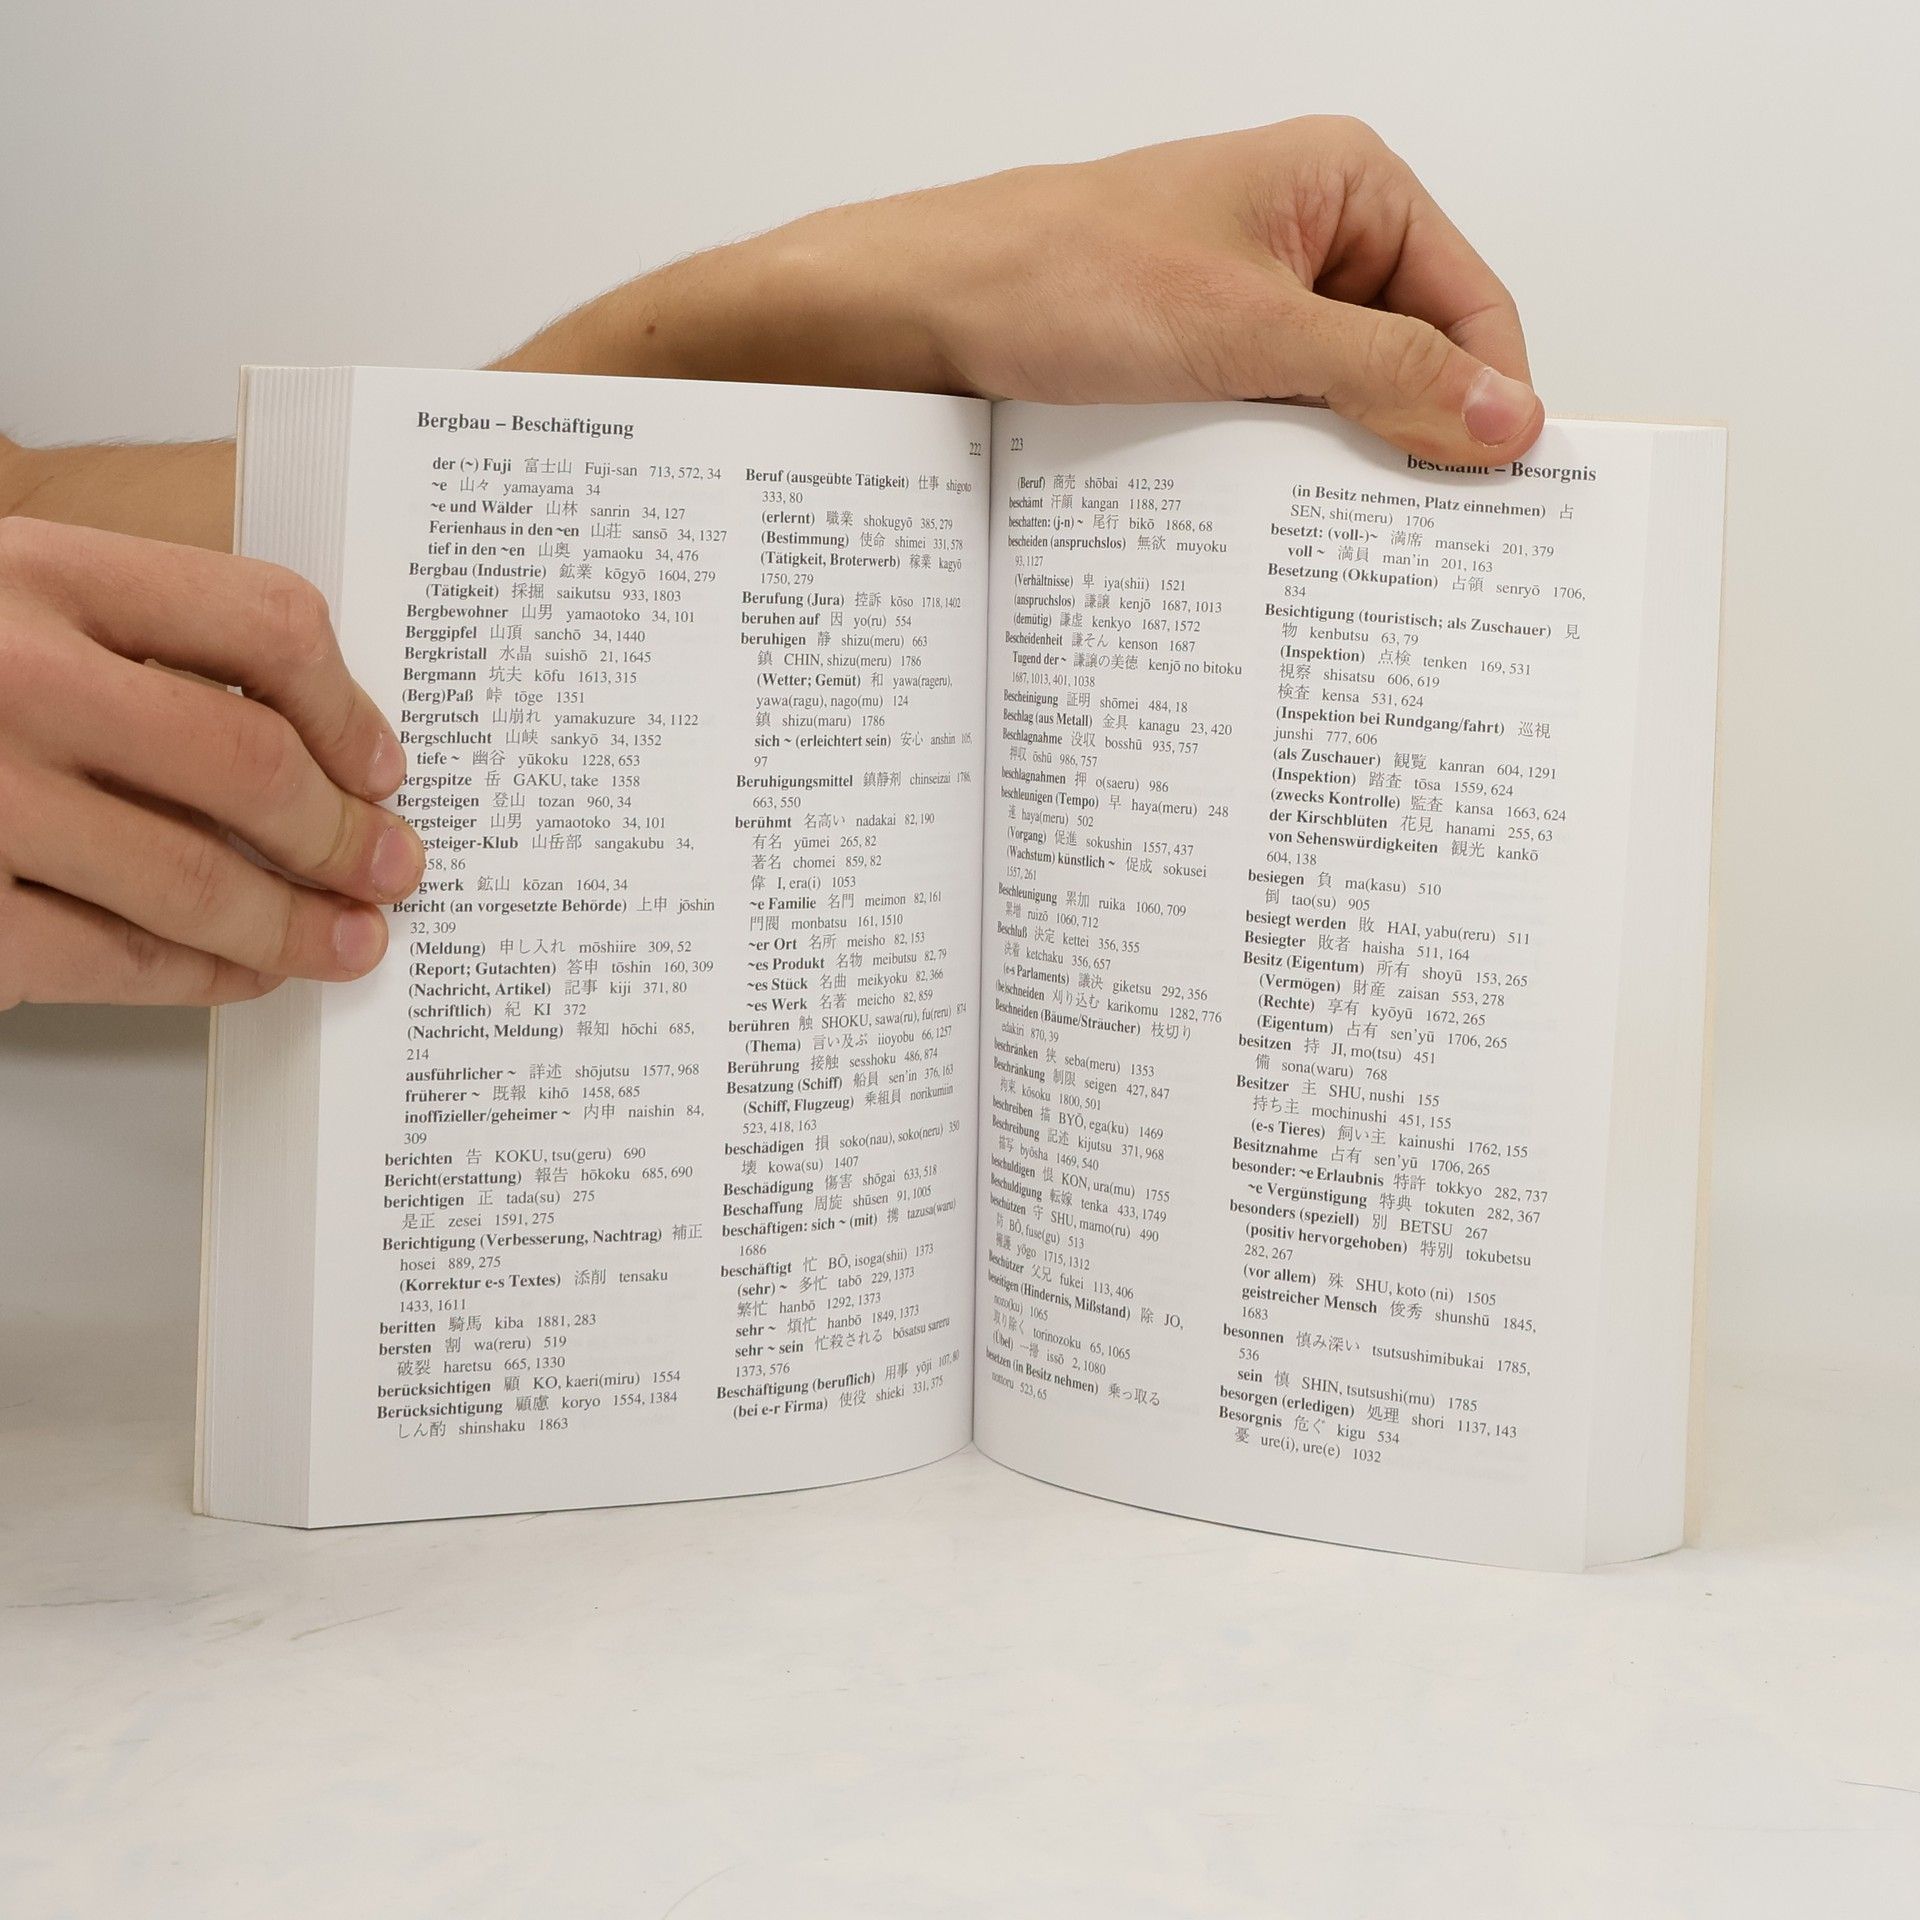 Bergbau – Beschäftigung
222
der (~) Fuji 富士山 Fuji-san 713, 572, 34
~e 山々 yamayama 34
~e und Wälder 山林 sanrin 34, 127
Ferienhaus in den ~en 山荘 sansō 34, 1327
tief in den ~en 山奥 yamaoku 34, 476
Bergbau (Industrie) 鉱業 kōgyō 1604, 279
(Tätigkeit) 採掘 saikutsu 933, 1803
Bergbewohner 山男 yamaotoko 34, 101
Berggipfel 山頂 sanchō 34, 1440
Bergkristall 水晶 suishō 21, 1645
Bergmann 坑夫 kōfu 1613, 315
(Berg)Paß 峠 tōge 1351
Bergrutsch 山崩れ yamakuzure 34, 1122
Bergschlucht 山峡 sankyō 34, 1352
tiefe ~ 幽谷 yūkoku 1228, 653
Bergspitze 岳 GAKU, take 1358
Bergsteigen 登山 tozan 960, 34
Bergsteiger 山男 yamaotoko 34, 101
gsteiger-Klub 山岳部 sangakubu 34,
58, 86
gwerk 鉱山 kōzan 1604, 34
Bericht (an vorgesetzte Behörde) 上申 jōshin
32, 309
(Meldung) 申し入れ mōshiire 309, 52
(Report; Gutachten) 答申 tōshin 160, 309
(Nachricht, Artikel) 記事 kiji 371, 80
(schriftlich) 紀 KI 372
(Nachricht, Meldung) 報知 hōchi 685,
214
ausführlicher ~ 詳述 shōjutsu 1577, 968
früherer ~ 既報 kihō 1458, 685
inoffizieller/geheimer ~ 内申 naishin 84,
309
berichten 告 KOKU, tsu(geru) 690
Bericht(erstattung) 報告 hōkoku 685, 690
berichtigen 正 tada(su) 275
是正 zesei 1591, 275
Berichtigung (Verbesserung, Nachtrag) 補正
hosei 889, 275
(Korrektur e-s Textes) 添削 tensaku
1433, 1611
beritten 騎馬 kiba 1881, 283
bersten 割 wa(reru) 519
破裂 haretsu 665, 1330
berücksichtigen 顧 KO, kaeri(miru) 1554
Berücksichtigung 顧慮 koryo 1554, 1384
しん酌 shinshaku 1863
Beruf (ausgeübte Tätigkeit) 仕事 shigoto
333, 80
(erlernt) 職業 shokugyō 385, 279
(Bestimmung) 使命 shimei 331, 578
(Tätigkeit, Broterwerb) 稼業 kagyō
1750, 279
Berufung (Jura) 控訴 kōso 1718, 1402
beruhen auf 因 yo(ru) 554
beruhigen 静 shizu(meru) 663
鎮 CHIN, shizu(meru) 1786
(Wetter; Gemüt) 和 yawa(rageru),
yawa(ragu), nago(mu) 124
鎮 shizu(maru) 1786
sich ~ (erleichtert sein) 安心 anshin 105,
97
Beruhigungsmittel 鎮静剤 chinseizai 1786,
663, 550
berühmt 名高い nadakai 82, 190
有名 yūmei 265, 82
著名 chomei 859, 82
偉 I, era(i) 1053
~e Familie 名門 meimon 82, 161
門閥 monbatsu 161, 1510
~er Ort 名所 meisho 82, 153
~es Produkt 名物 meibutsu 82, 79
~es Stück 名曲 meikyoku 82, 366
~es Werk 名著 meicho 82, 859
berühren 触 SHOKU, sawa(ru), fu(reru) 874
(Thema) 言い及ぶ iioyobu 66, 1257
Berührung 接触 sesshoku 486, 874
Besatzung (Schiff) 船員 sen'in 376, 163
(Schiff, Flugzeug) 乗組員 norikumiin
523, 418, 163
beschädigen 損 soko(nau), soko(neru) 350
壊 kowa(su) 1407
Beschädigung 傷害 shōgai 633, 518
Beschaffung 周旋 shūsen 91, 1005
beschäftigen: sich ~ (mit) 携 tazusa(waru)
1686
beschäftigt 忙 BŌ, isoga(shii) 1373
(sehr) ~ 多忙 tabō 229, 1373
繁忙 hanbō 1292, 1373
sehr ~ 煩忙 hanbō 1849, 1373
sehr ~ sein 忙殺される bōsatsu sareru
1373, 576
Beschäftigung (beruflich) 用事 yōji 107, 80
(bei e-r Firma) 使役 shieki 331, 375
223
beschämt – Besorgnis
(Beruf) 商売 shōbai 412, 239
beschämt 汗顔 kangan 1188, 277
beschatten: (j-n) ~ 尾行 bikō 1868, 68
bescheiden (anspruchslos) 無欲 muyoku
93, 1127
(Verhältnisse) 卑 iya(shii) 1521
(anspruchslos) 謙譲 kenjō 1687, 1013
(demütig) 謙虚 kenkyo 1687, 1572
Bescheidenheit 謙そん kenson 1687
Tugend der ~ 謙譲の美徳 kenjō no bitoku
1687, 1013, 401, 1038
Bescheinigung 証明 shōmei 484, 18
Beschlag (aus Metall) 金具 kanagu 23, 420
Beschlagnahme 没収 bosshū 935, 757
押収 ōshū 986, 757
beschlagnahmen 押 o(saeru) 986
beschleunigen (Tempo) 早 haya(meru) 248
速 haya(meru) 502
(Vorgang) 促進 sokushin 1557, 437
(Wachstum) künstlich ~ 促成 sokusei
1557, 261
Beschleunigung 累加 ruika 1060, 709
累増 ruizō 1060, 712
Beschluß 決定 kettei 356, 355
決着 ketchaku 356, 657
(e-s Parlaments) 議決 giketsu 292, 356
(be)schneiden 刈り込む karikomu 1282, 776
Beschneiden (Bäume/Sträucher) 枝切り
edakiri 870, 39
beschränken 狭 seba(meru) 1353
Beschränkung 制限 seigen 427, 847
拘束 kōsoku 1800, 501
beschreiben 描 BYŌ, ega(ku) 1469
Beschreibung 記述 kijutsu 371, 968
描写 byōsha 1469, 540
beschuldigen 恨 KON, ura(mu) 1755
Beschuldigung 転嫁 tenka 433, 1749
beschützen 守 SHU, mamo(ru) 490
防 BŌ, fuse(gu) 513
擁護 yōgo 1715, 1312
Beschützer 父兄 fukei 113, 406
beseitigen (Hindernis, Mißstand) 除 JO,
nozo(ku) 1065
取り除く torinozoku 65, 1065
(Übel) 一掃 issō 2, 1080
besetzen (in Besitz nehmen) 乗っ取る
nottoru 523, 65
(in Besitz nehmen, Platz einnehmen) 占
SEN, shi(meru) 1706
besetzt: (voll-)~ 満席 manseki 201, 379
voll ~ 満員 man'in 201, 163
Besetzung (Okkupation) 占領 senryō 1706,
834
Besichtigung (touristisch; als Zuschauer) 見
物 kenbutsu 63, 79
(Inspektion) 点検 tenken 169, 531
視察 shisatsu 606, 619
検査 kensa 531, 624
(Inspektion bei Rundgang/fahrt) 巡視
junshi 777, 606
(als Zuschauer) 観覧 kanran 604, 1291
(Inspektion) 踏査 tōsa 1559, 624
(zwecks Kontrolle) 監査 kansa 1663, 624
der Kirschblüten 花見 hanami 255, 63
von Sehenswürdigkeiten 観光 kankō
604, 138
besiegen 負 ma(kasu) 510
倒 tao(su) 905
besiegt werden 敗 HAI, yabu(reru) 511
Besiegter 敗者 haisha 511, 164
Besitz (Eigentum) 所有 shoyū 153, 265
(Vermögen) 財産 zaisan 553, 278
(Rechte) 享有 kyōyū 1672, 265
(Eigentum) 占有 sen'yū 1706, 265
besitzen 持 JI, mo(tsu) 451
備 sona(waru) 768
Besitzer 主 SHU, nushi 155
持ち主 mochinushi 451, 155
(e-s Tieres) 飼い主 kainushi 1762, 155
Besitznahme 占有 sen'yū 1706, 265
besonder: ~e Erlaubnis 特許 tokkyo 282, 737
~e Vergünstigung 特典 tokuten 282, 367
besonders (speziell) 別 BETSU 267
(positiv hervorgehoben) 特別 tokubetsu
282, 267
(vor allem) 殊 SHU, koto (ni) 1505
geistreicher Mensch 俊秀 shunshū 1845,
1683
besonnen 慎み深い tsutsushimibukai 1785,
536
sein 慎 SHIN, tsutsushi(mu) 1785
besorgen (erledigen) 処理 shori 1137, 143
Besorgnis 危ぐ kigu 534
憂 ure(i), ure(e) 1032